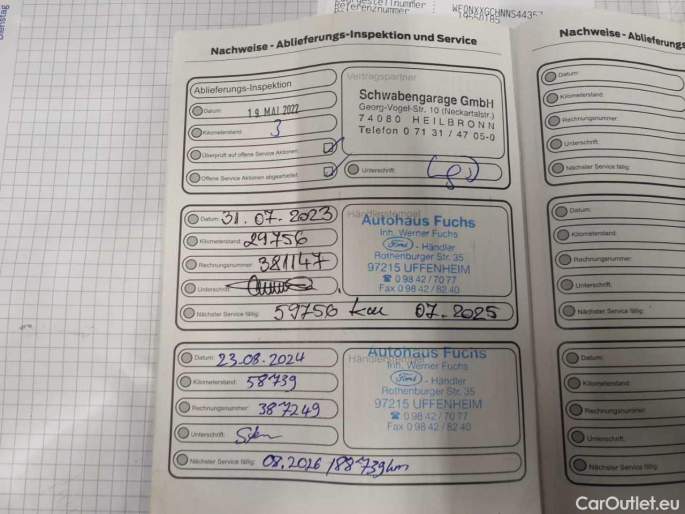 Dienstag
Fahrgestellnummer : WF0NXXGCHNNS4435
Referenznummer
Nachweise - Ablieferungs-Inspektion und Service
Ablieferungs-Inspektion
Datum: 19. MAI 2022
Kilometerstand: 3
Überprüft auf offene Service Aktionen:
Offene Service Aktionen abgearbeitet:
Vertragspartner
Schwabengarage GmbH
Georg-Vogel-Str. 10 (Neckartalstr.)
74080 HEILBRONN
Telefon 0 71 31 / 47 05-0
Unterschrift:
Datum: 31.07.2023
Kilometerstand: 29756
Rechnungsnummer: 381147
Unterschrift:
Nächster Service fällig: 59756 km 07.2025
Händlerstempel
Autohaus Fuchs
Inh. Werner Fuchs
Ford - Händler
Rothenburger Str. 35
97215 UFFENHEIM
☎ 0 98 42 / 70 77
Fax 0 98 42 / 82 40
Datum: 23.08.2024
Kilometerstand: 58739
Rechnungsnummer: 387249
Unterschrift:
Nächster Service fällig: 08.2026 / 88739km
Händlerstempel
Autohaus Fuchs
Inh. Werner Fuchs
Ford - Händler
Rothenburger Str. 35
97215 UFFENHEIM
☎ 0 98 42 / 70 77
Fax 0 98 42 / 82 40
Nachweise - Ablieferungs
Datum:
Kilometerstand:
Rechnungsnummer:
Unterschrift:
Nächster Service fällig:
Datum:
Kilometerstand:
Rechnungsnummer:
Unterschrift:
Nächster Service fällig:
Datum:
Kilometerstand:
Rechnungsnummer:
Unterschrift:
Nächster Service fällig:
CarOutlet.eu